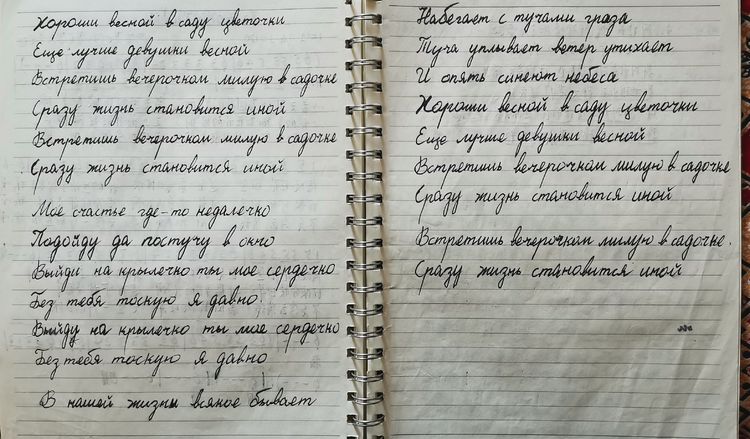 Хороши весной в саду цветочки
Еще лучше девушки весной
Встретишь вечерочком милую в садочке
Сразу жизнь становится иной
Встретишь вечерочком милую в садочке
Сразу жизнь становится иной
Мое счастье где-то недалечко
Подойду да постучу в окно
Выйди на крылечко ты мое сердечко
Без тебя тоскую я давно.
Выйду на крылечко ты мое сердечко
Без тебя тоскую я давно
В нашей жизни всякое бывает
Набегает с тучами гроза
Туча уплывает ветер утихает
И опять синеют небеса
Хороши весной в саду цветочки
Еще лучше девушки весной
Встретишь вечерочком милую в садочке
Сразу жизнь становится иной
Встретишь вечерочком милую в садочке.
Сразу жизнь становится иной